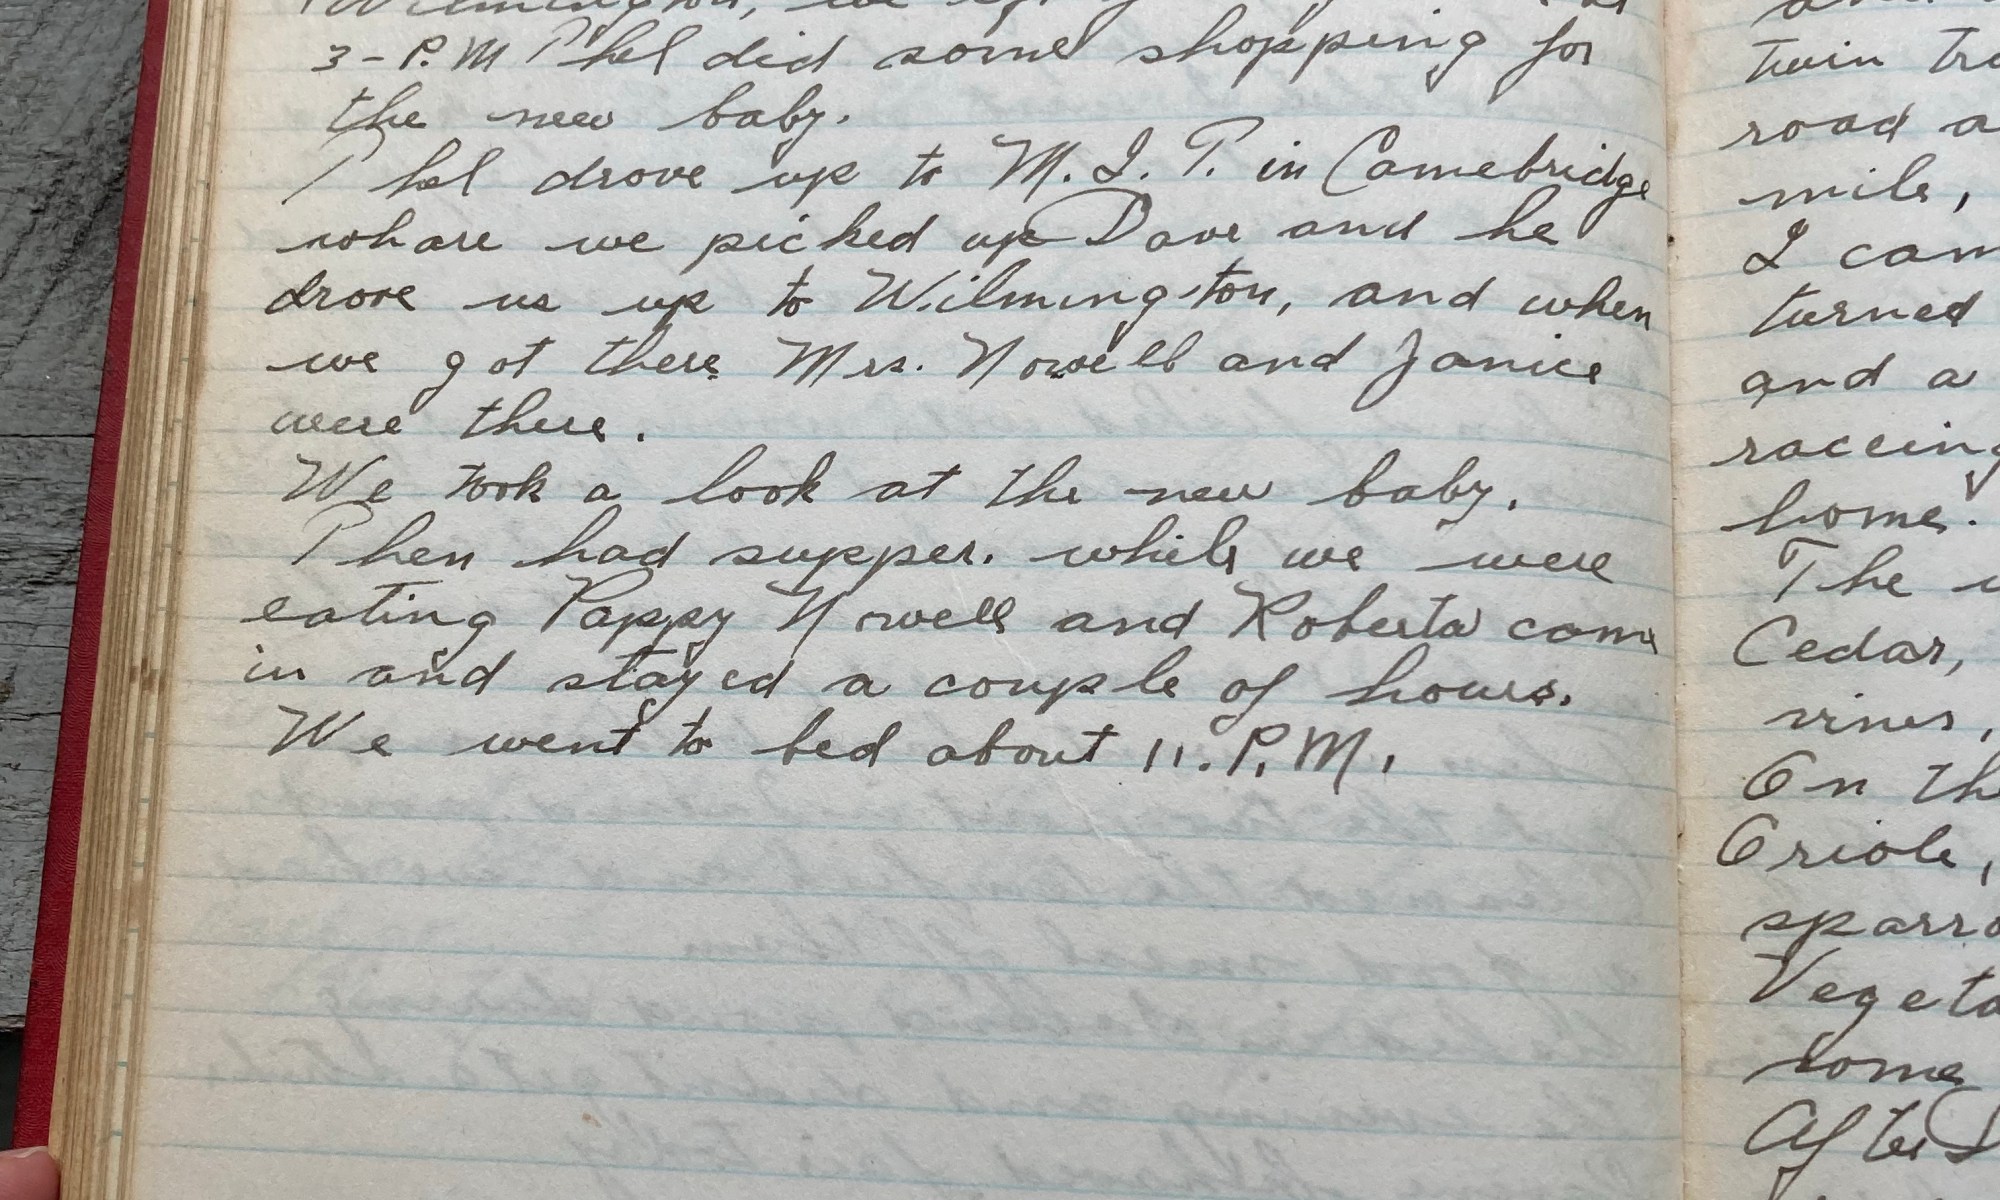 Wilmington, we
3-P.M Phel did some shopping for
the new baby.
Phel drove up to M. I. T. in Camebridge
whare we picked up Dave and he
drove us up to Wilmington, and when
we got there Mrs. Nowell and Janice
were there.
We took a look at the new baby.
Then had supper. while we were
eating Pappy Nowell and Roberta came
in and stayed a couple of hours.
We went to bed about 11. P.M.
twin
road a
mile,
I
turned
and a
racceing
home.
The
Cedar,
vines,
On
Oriole,
some
After